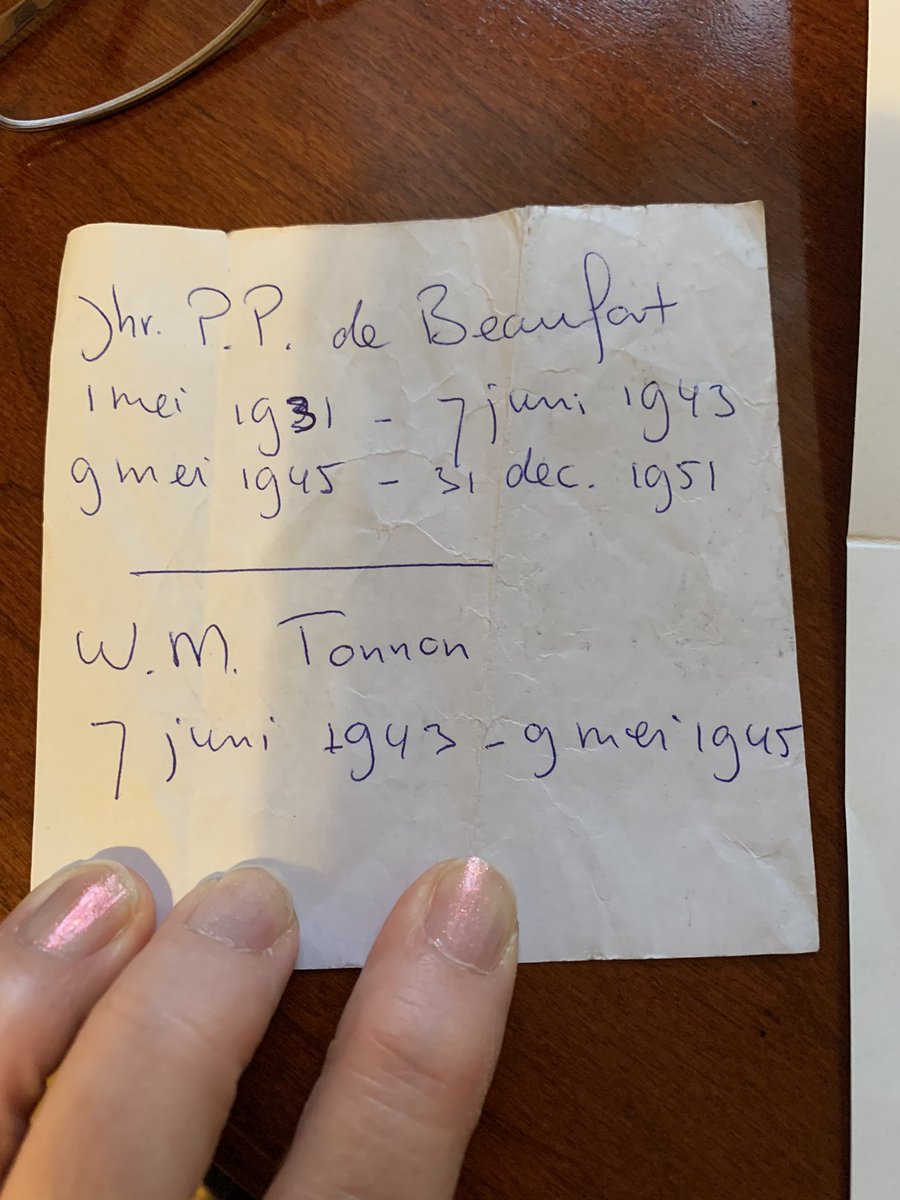 Jhr. P.P. de Beaufort
1 mei 1931 - 7 juni 1943
9 mei 1945 - 31 dec. 1951
W.M. Tonnon
7 juni 1943 - 9 mei 1945